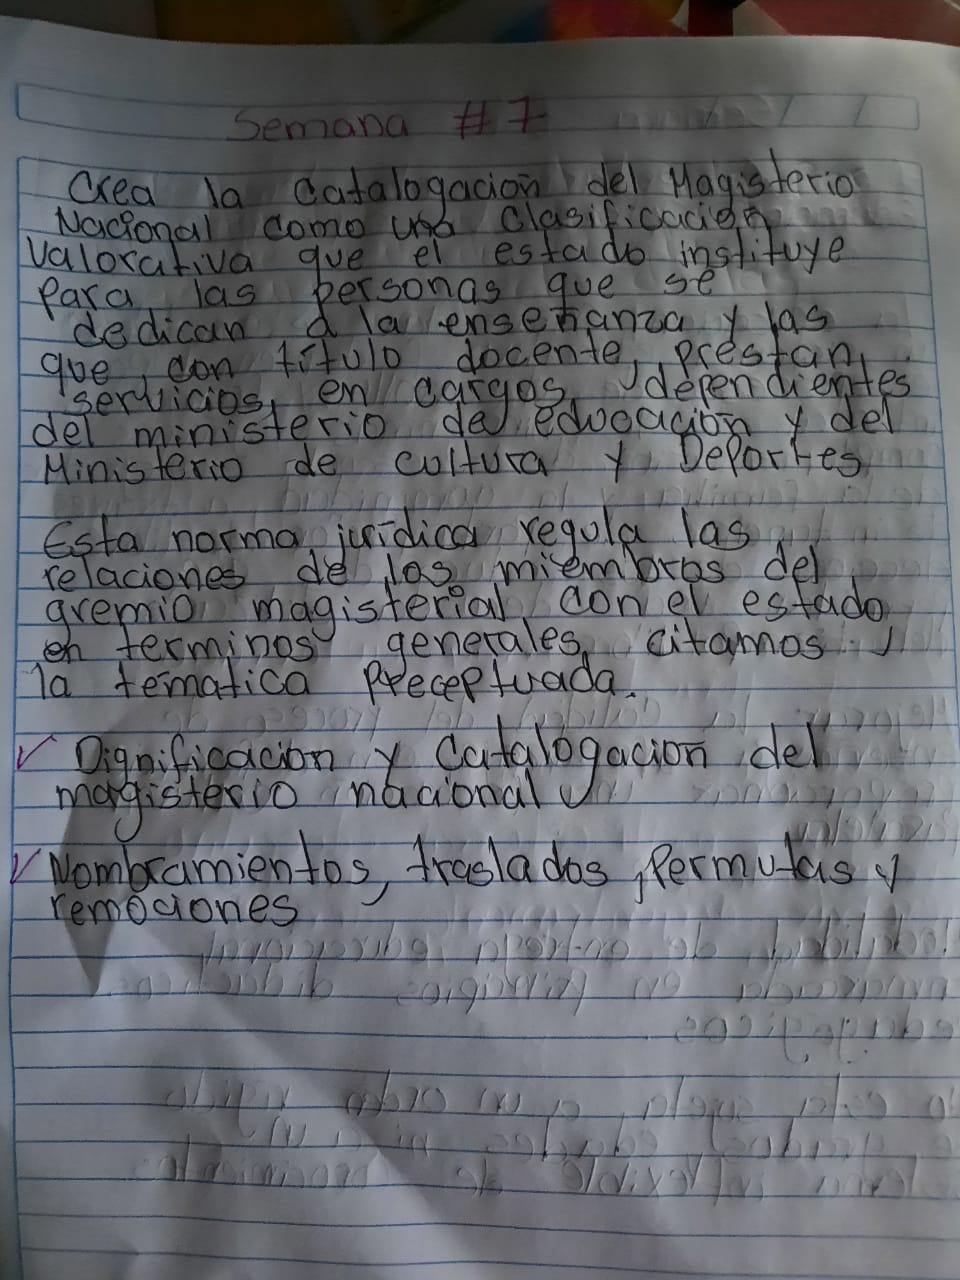 Semana # 7
Crea la Catalogacion del Magisterio
Nacional como una Clasificación
Valorativa que el estado instituye
Para las personas que se
dedican a la enseñanza y las
que, con título docente, prestan,
servicios, en cargos, dependientes
del ministerio de educación y del
Ministerio de cultura y Deportes
Esta norma jurídica regula las
relaciones de los miembros del
gremio magisterial con el estado
en terminos generales, citamos
la tematica Preceptuada.
✓ Dignificacion y Catalogacion del
magisterio nacional
✓ Nombramientos, traslados, Permutas y
remociones